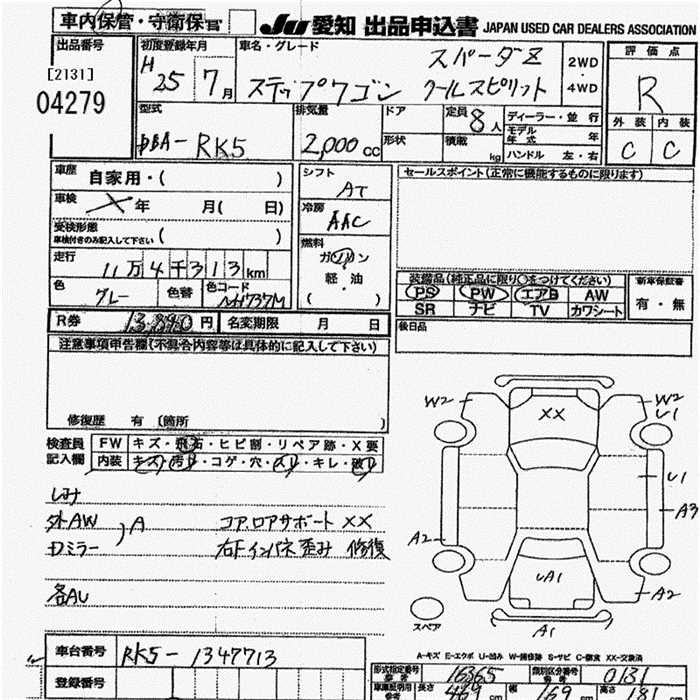 車内保管・守衛保管
JU 愛知 出品申込書 JAPAN USED CAR DEALERS ASSOCIATION
出品番号
[2131]
04279
初度登録年月
H25 7月
車名・グレード
スパーダZ
ステップワゴン クールスピリット
2WD
・
4WD
評価点
R
外装 内装
C C
型式
DBA-RK5
排気量
2,000cc
ドア
形状
定員 8人
積載 kg
ディーラー・並行
モデル年式 年
ハンドル 左・右
車歴
自家用・( )
車検
年 月( 日)
受検形態
車検付きのみ記入して下さい ( )
走行
11万4千313km
色
グレー
色替
色コード
NH737M
シフト
AT
冷房
AAC
燃料
ガソリン
軽・油
( )
セールスポイント(正常に機能するものに限ります)
装備品(純正品に限り○をつけてください)
PS PW エアB AW
SR ナビ TV カワシート
新車保証書
有・無
後日品
R券 13,890円 名変期限 月 日
注意事項申告欄(不具合内容等は具体的に記入して下さい)
修復歴 有 〔箇所 〕
検査員記入欄
FW キズ・飛石・ヒビ割・リペア跡・X要
内装 キズ・汚れ・コゲ・穴・スレ・キレ・破れ
しみ
外AW
Dミラー
) A
コア.ロアサポート XX
右Fインパネ歪み 修復
各AU
W2 XX W2
U1
U1
A3
A2
UA1
A2
A1
スペア
A-キズ E-エクボ U-凹み W-補修跡 S-サビ C-腐食 XX-交換済
車台番号 RK5-1347713
登録番号
形式指定番号 16365 類別区分番号 0131
長さ 469cm 幅 169 高さ 181